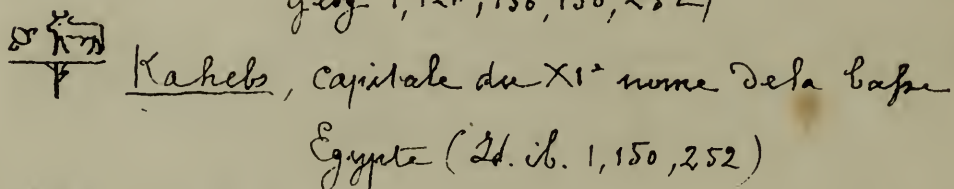 geog 1, 121, 150, 150, 252)
Kahebs, capitale du XIe nome de la basse
Egypte (Id. ib. 1, 150, 252)